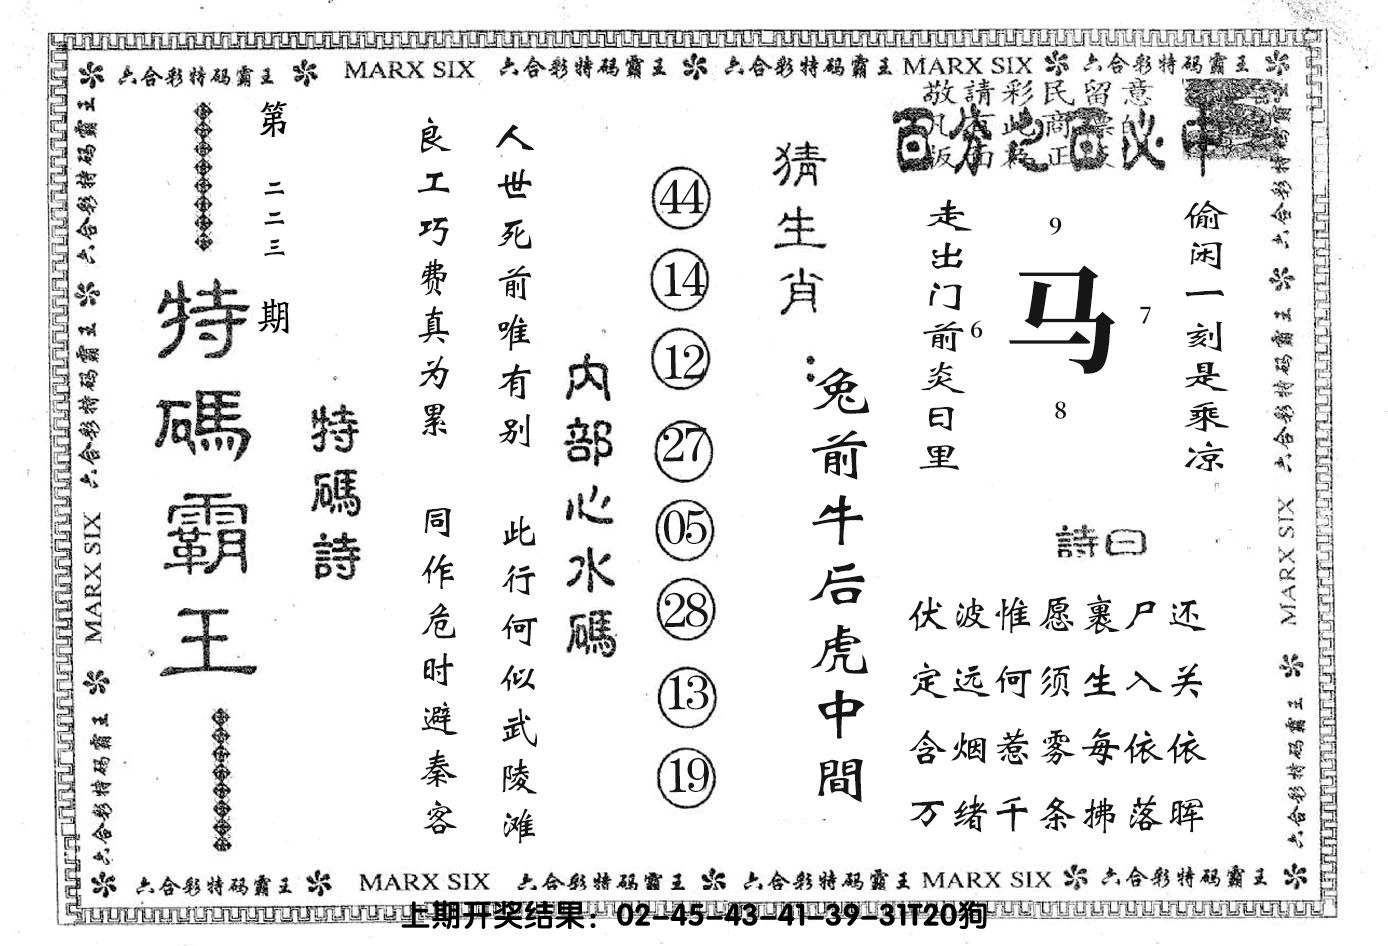 六合彩特码霸王 MARX SIX 六合彩特码霸王 六合彩特码霸王 MARX SIX 六合彩特码霸王
敬請彩民留意
百分之百必中
第二二三期
特碼霸王
特碼詩
人世死前唯有别 此行何似武陵滩
良工巧费真为累 同作危时避秦客
内部心水碼
44
14
12
27
05
28
13
19
猜生肖:
兔前牛后虎中間
偷闲一刻是乘凉
走出门前炎日里
9
马
6
7
8
詩曰
伏波惟愿裹尸还
定远何须生入关
含烟惹雾每依依
万绪千条拂落晖
六合彩特码霸王 六合彩特码霸王 MARX SIX 六合彩特码霸王
六合彩特码霸王 六合彩特码霸王 MARX SIX 六合彩特码霸王
六合彩特码霸王 MARX SIX 六合彩特码霸王 六合彩特码霸王 MARX SIX 六合彩特码霸王
上期开奖结果：02-45-43-41-39-31T20狗